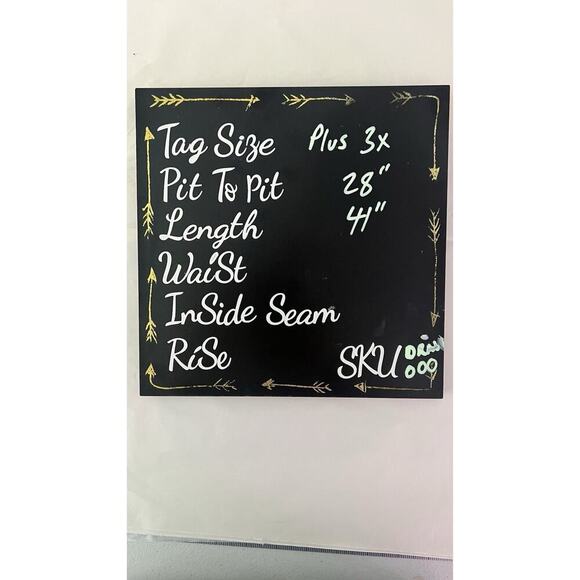 Tag Size Plus 3x
Pit To Pit 28"
Length 41"
WaiSt
InSide Seam
RiSe
SKU
000